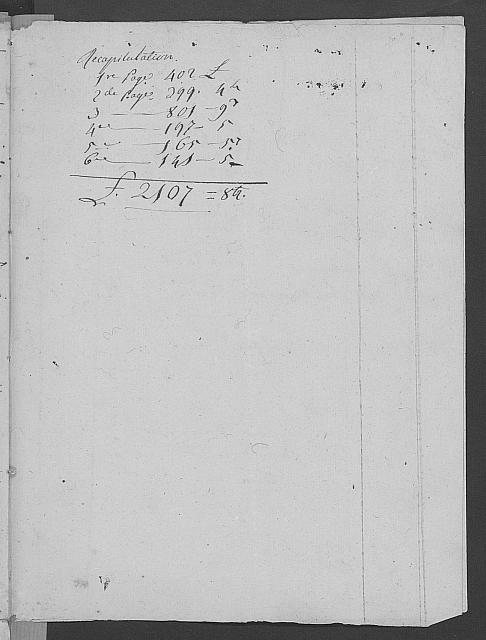 Recapitulation.
1re Page 402 £
2de Page 299. 4
3 — 801 — 9
4e — 197 — 5
5e — 165 — 5
6e — 141 — 5
£. 2107 = 8